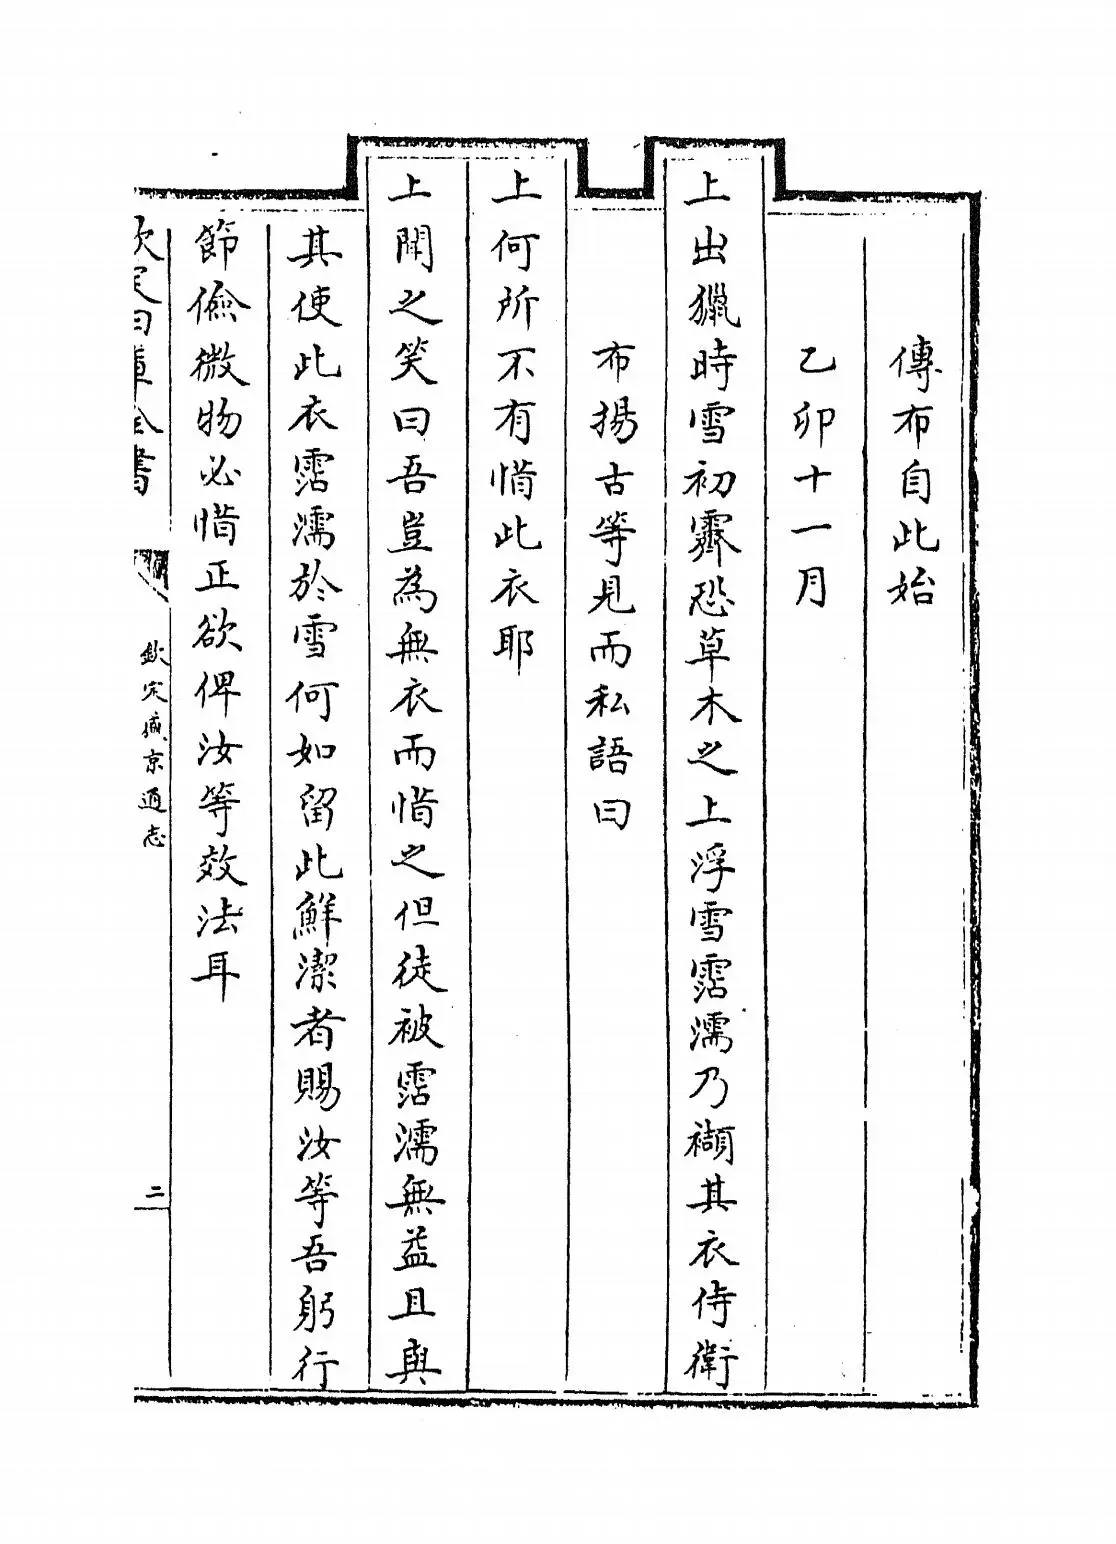 傳布自此始
乙卯十一月
上出獵時雪初霽恐草木之上浮雪霑濡乃襭其衣侍衛
布揚古等見而私語曰
上何所不有惜此衣耶
上聞之笑曰吾豈為無衣而惜之但徒被霑濡無益且與
其使此衣霑濡於雪何如留此鮮潔者賜汝等吾躬行
節儉微物必惜正欲俾汝等效法耳
欽定四庫全書
欽定盛京通志
二